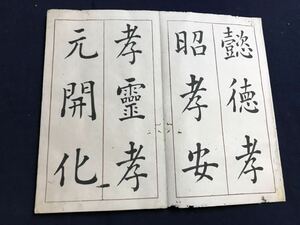 懿德孝
昭孝安
孝靈孝
元開化